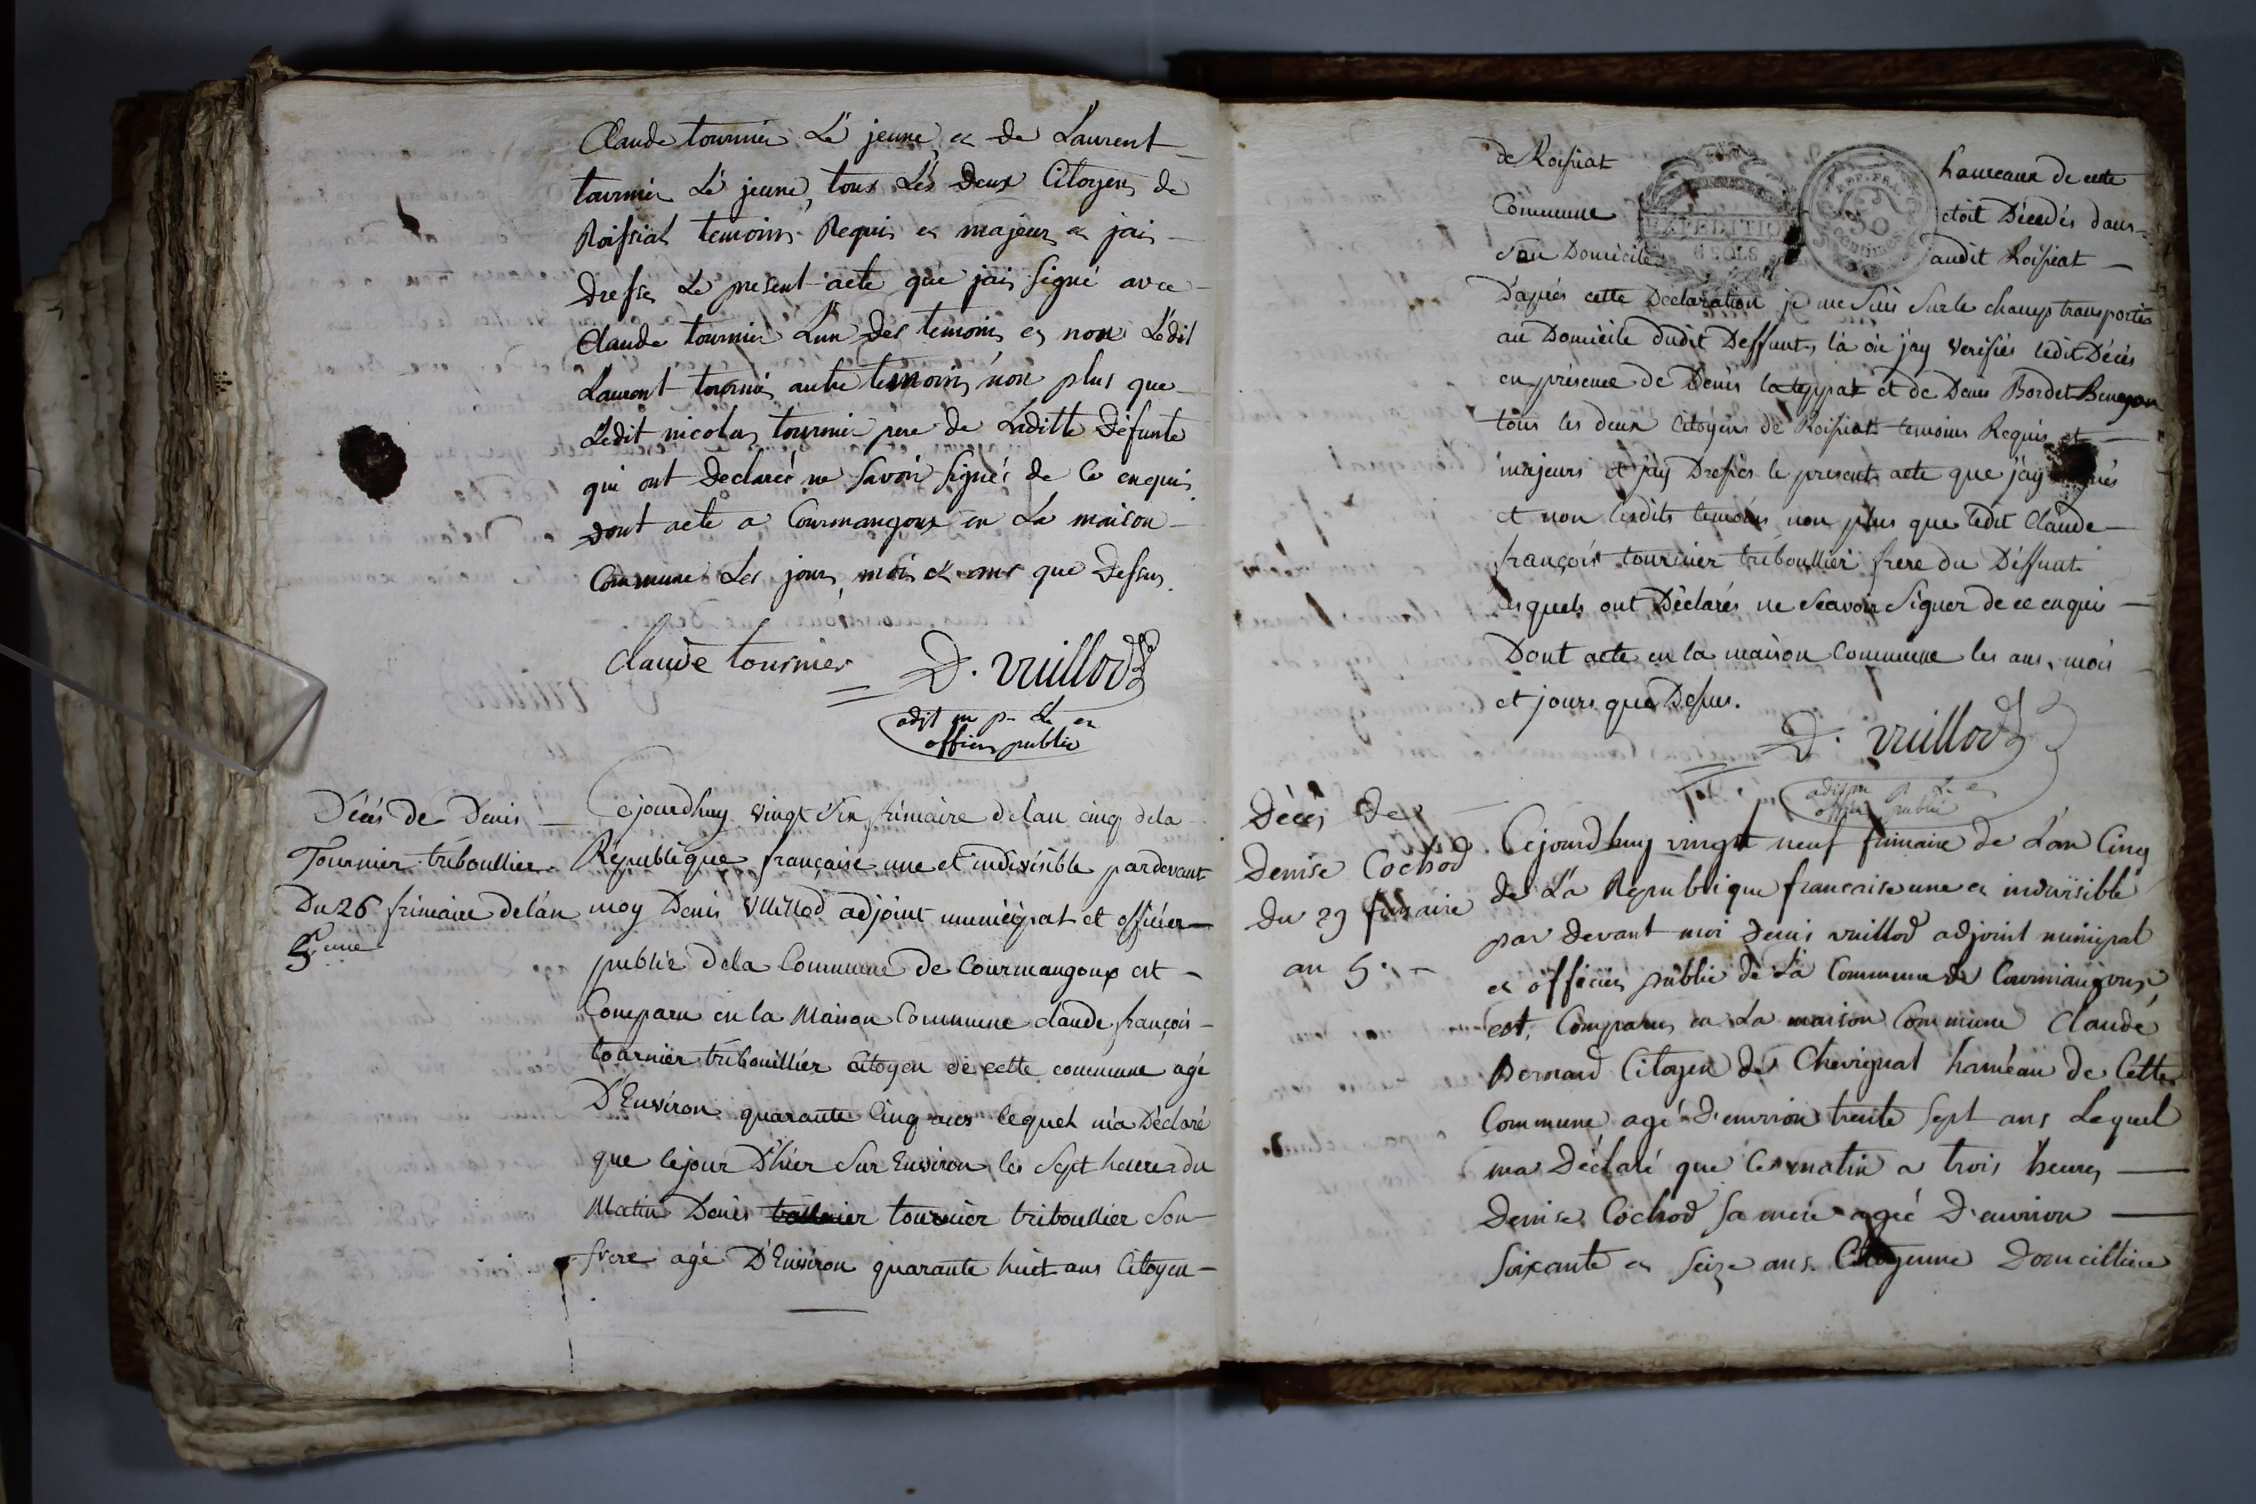 Claude tournier Le jeune, et de Laurent
tournier Le jeune, tous Les deux Citoyens de
Roissiat temoins Requis et majeurs et jais
dresse Le present acte que jais signé avec
Claude tournier L'un des temoins et non Ledit
Laurent tournier autre temoins non plus que
Ledit nicolas tournier pere de Laditte Défunte
qui ont declarés ne savoir signés de ce enquis
dont acte a Courmangoux en La maison
Commune Les jours, mois et ans que dessus.
Claude tournier D. vuillod
adjt m p
officier public
Décés de Denis
Tournier triboullier
Du 26 frimaire de l'an
5eme
Cejourdhuy vingt six frimaire de lan cinq de la
République française une et indivisible pardevant
moy Denis vuillod adjoint municipal et officier
public de la Commune de Courmangoux est
Comparu en la Maison Commune claude françois
tournier tribouillier citoyen de cette commune agé
D'Environ quarante Cinq ans lequel m'a Déclaré
que lejour D'hier sur Environ les sept heures du
Matin Denis tournier triboullier son
frere agé D'Environ quarante huit ans Citoyen
de Roissiat hameaux de cette
Commune etoit Décédés dans
EXPEDITION
6 SOLS
REP. FRA.
50
centimes
son Domicile audit Roissiat
D'aprés cette Déclaration je me suis sur le champ transportés
au Domicile dudit Deffunt, là où j'ay verifiés ledit Décés
en présence de Denis layyrat et de Denis Bordet Benayon
tous les deux Citoyens de Roissiat temoins Requis et
majeurs et j'ay Dressés le present acte que j'ay signés
et non lesdits temoins non plus que ledit Claude
françois tournier triboullier frere du Deffunt
lesquels ont Déclarés ne scavoir signer de ce enquis
Dont acte en la maison Commune les ans, mois
et jours que Dessus.
D. vuillod
adjoin p
officier public
Décés de
Denise Cochod
du 29 frimaire
an 5.
Cejourdhuy vingt neuf frimaire de L'an Cinq
de La Republique francaise une et indivisible
par devant moi Denis vuillod adjoint municipal
et officier public de La Commune de Courmangoux
est, Comparus en La maison Commune Claude
Bernard Citoyen de Chevignat haméau de Cette
Commune agé d'environ trente sept ans Lequel
ma Déclaré que ce matin a trois heures
Denise Cochod sa mere agée d'environ
soixante et seize ans Citoyenne Domicilliée